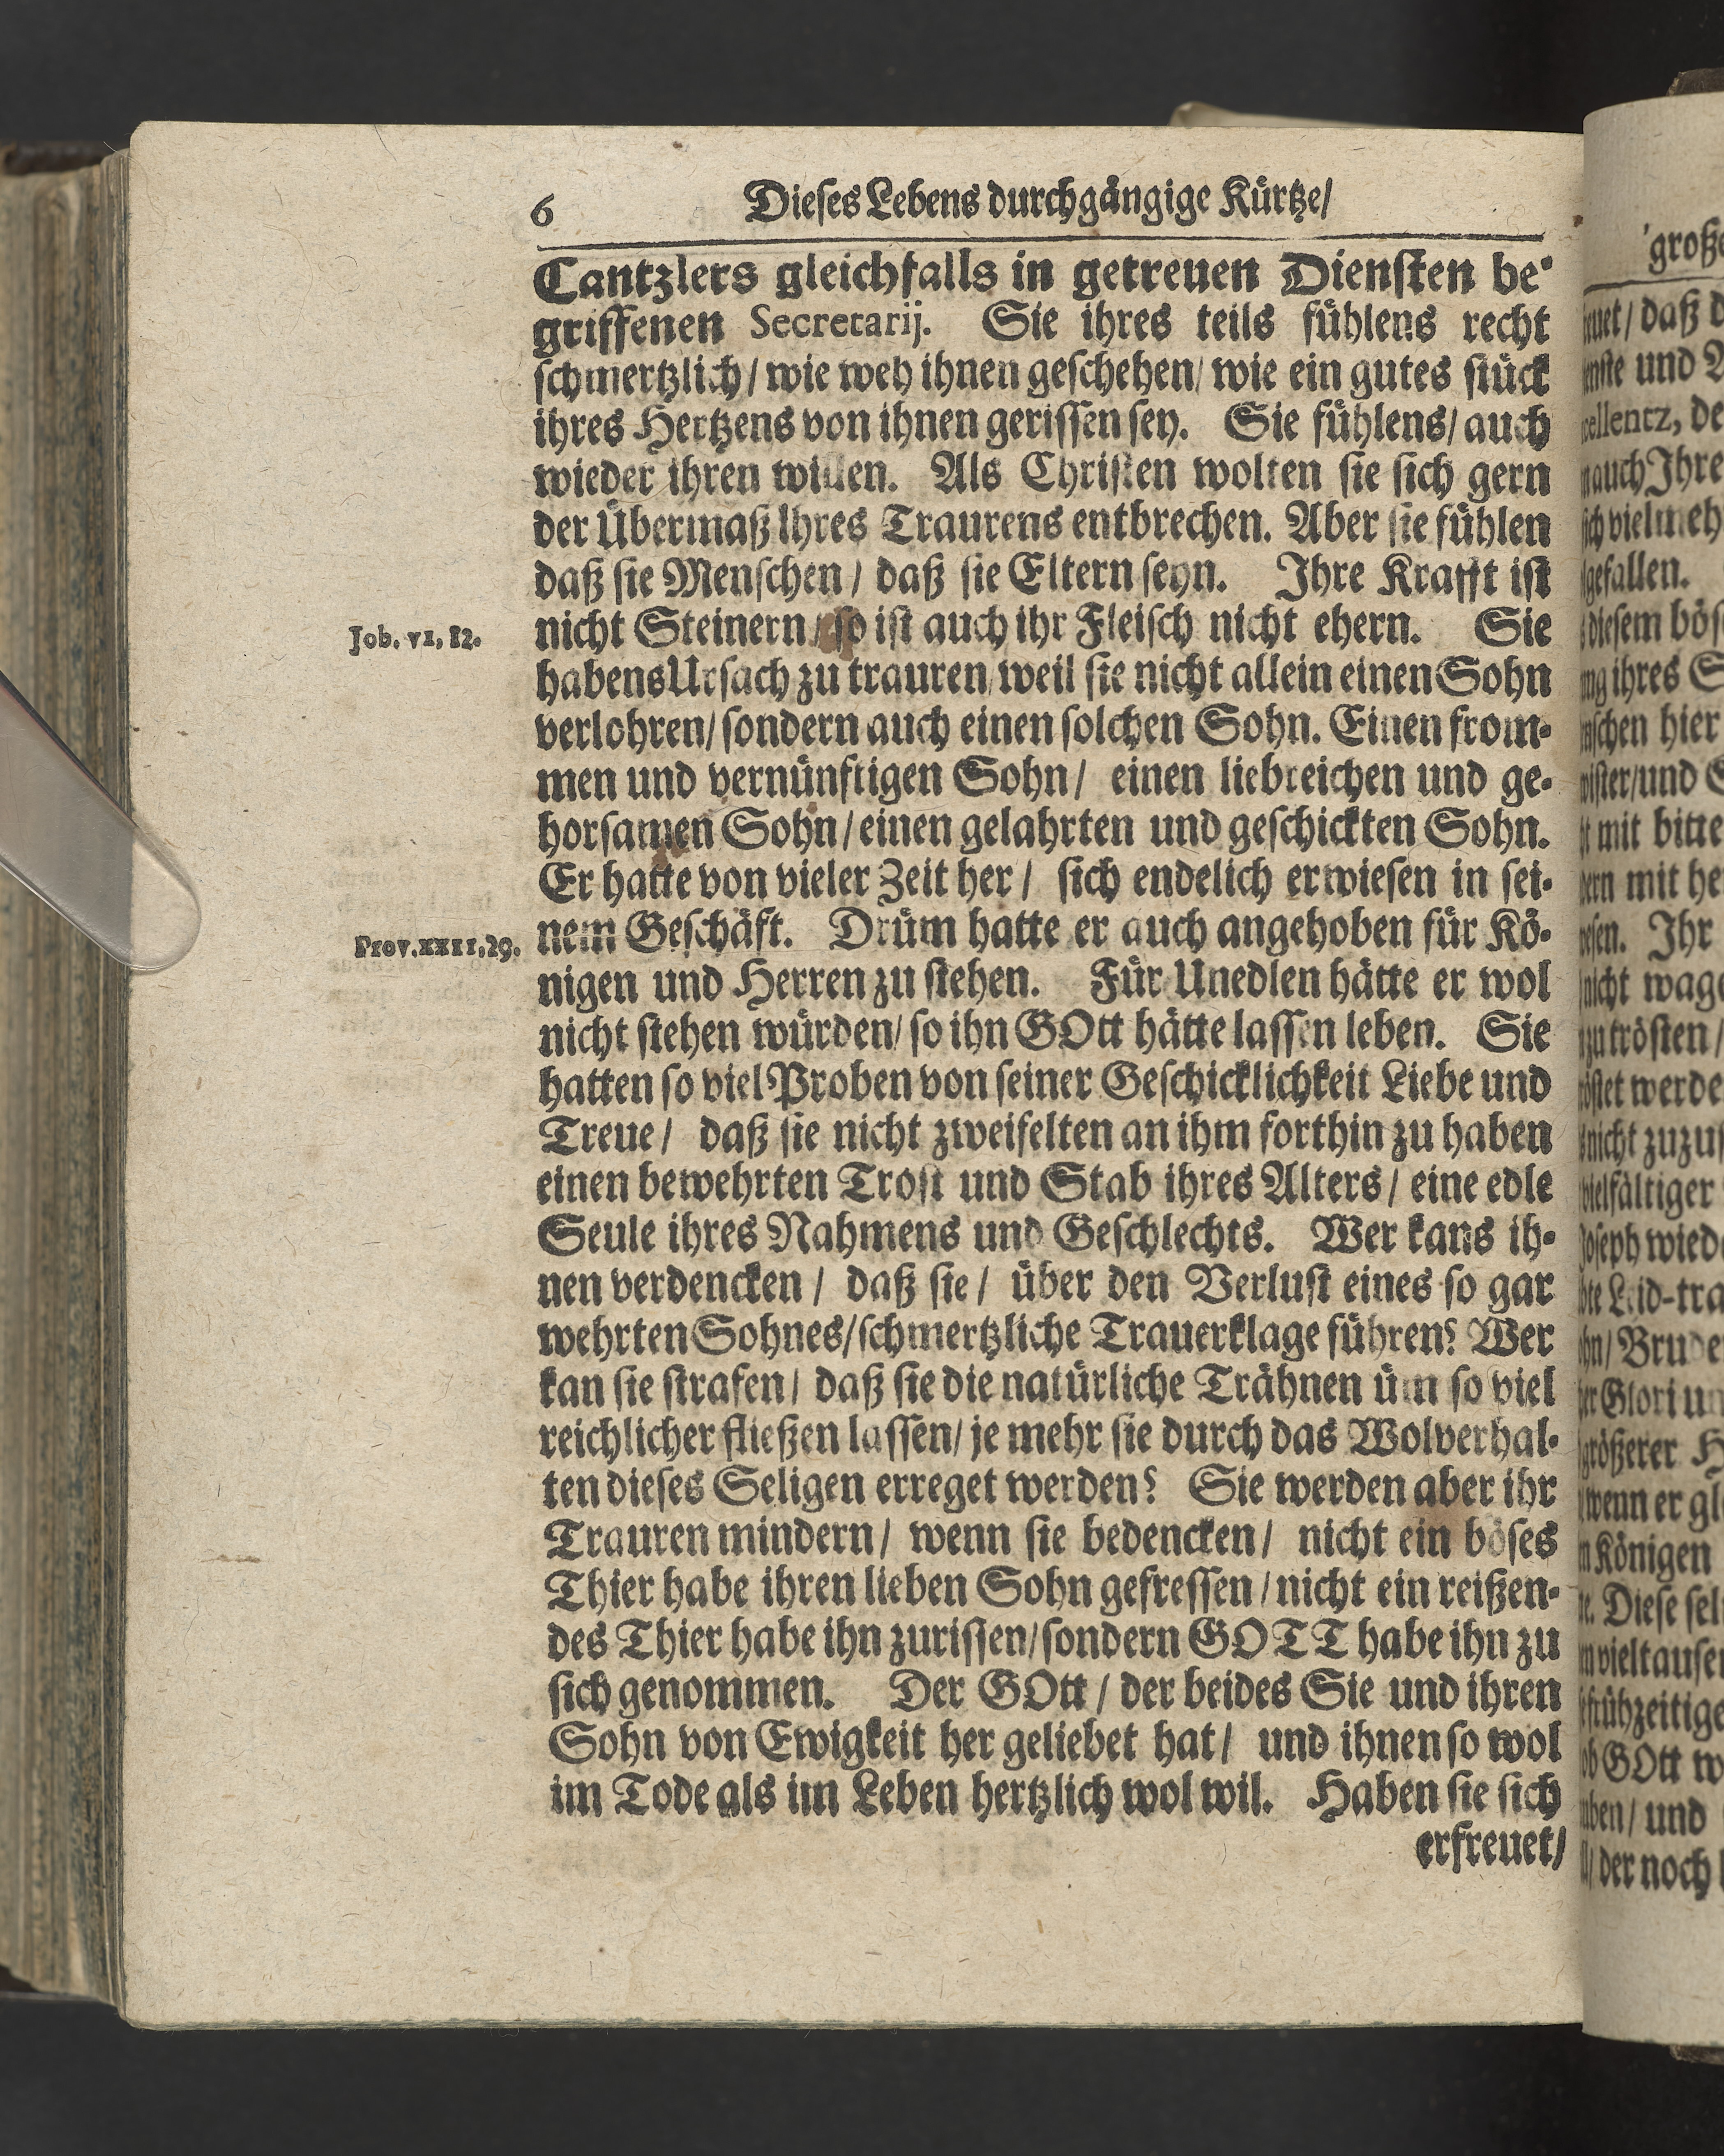 6 Dieses Lebens durchgängige Kürtze/
Cantzlers gleichfalls in getreuen Diensten be-
griffenen Secretarij. Sie ihres teils fühlens recht
schmertzlich/ wie weh ihnen geschehen/ wie ein gutes stück
ihres Hertzens von ihnen gerissen sey. Sie fühlens/ auch
wieder ihren willen. Als Christen wolten sie sich gern
der Übermaß Ihres Traurens entbrechen. Aber sie fühlen
daß sie Menschen/ daß sie Eltern seyn. Ihre Krafft ist
Job. VI, 12.
nicht Steinern/ so ist auch ihr Fleisch nicht ehern. Sie
habens Ursach zu trauren/ weil sie nicht allein einen Sohn
verlohren/ sondern auch einen solchen Sohn. Einen from-
men und vernünftigen Sohn/ einen liebreichen und ge-
horsamen Sohn/ einen gelahrten und geschickten Sohn.
Er hatte von vieler Zeit her/ sich endelich erwiesen in sei-
Prov. XXII, 29.
nem Geschäft. Drüm hatte er auch angehoben für Kö-
nigen und Herren zu stehen. Für Unedlen hätte er wol
nicht stehen würden/ so ihn GOtt hätte lassen leben. Sie
hatten so viel Proben von seiner Geschicklichkeit Liebe und
Treue/ daß sie nicht zweifelten an ihm forthin zu haben
einen bewehrten Trost und Stab ihres Alters/ eine edle
Seule ihres Nahmens und Geschlechts. Wer kans ih-
nen verdencken/ daß sie/ über den Verlust eines so gar
wehrten Sohnes/ schmertzliche Trauerklage führen? Wer
kan sie strafen/ daß sie die natürliche Trähnen üm so viel
reichlicher fließen lassen/ je mehr sie durch das Wolverhal-
ten dieses Seligen erreget werden? Sie werden aber ihr
Trauren mindern/ wenn sie bedencken/ nicht ein böses
Thier habe ihren lieben Sohn gefressen/ nicht ein reißen-
des Thier habe ihn zurissen/ sondern GOTT habe ihn zu
sich genommen. Der GOtt/ der beides Sie und ihren
Sohn von Ewigkeit her geliebet hat/ und ihnen so wol
im Tode als im Leben hertzlich wol wil. Haben sie sich
erfreuet/